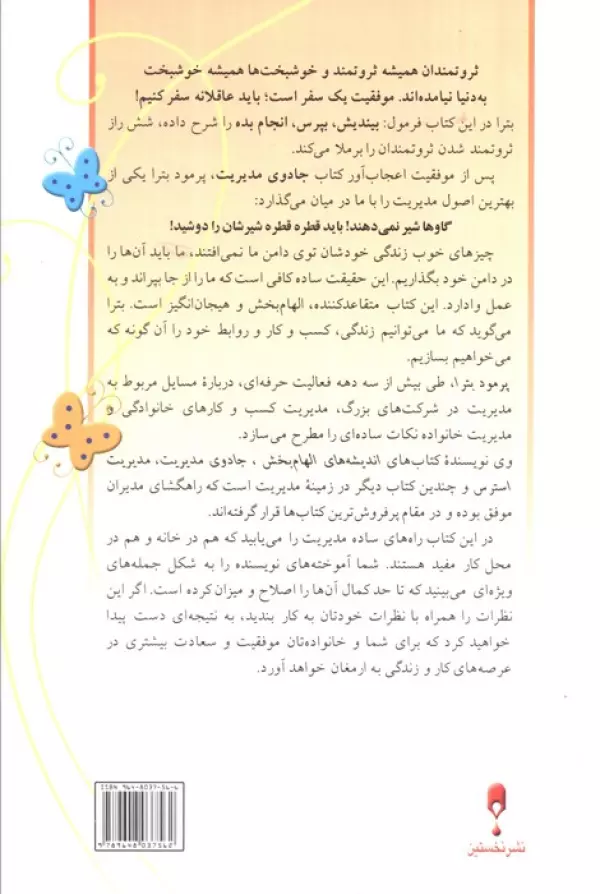 ثروتمندان همیشه ثروتمند و خوشبخت‌ها همیشه خوشبخت
به‌دنیا نیامده‌اند. موفقیت یک سفر است؛ باید عاقلانه سفر کنیم!
بترا در این کتاب فرمول: بیندیش، بپرس، انجام بده را شرح داده، شش راز
ثروتمند شدن ثروتمندان را برملا می‌کند.
پس از موفقیت اعجاب‌آور کتاب جادوی مدیریت، پرمود بترا یکی از
بهترین اصول مدیریت را با ما در میان می‌گذارد:
گاوها شیر نمی‌دهند! باید قطره قطره شیرشان را دوشید!
چیزهای خوب زندگی خودشان توی دامن ما نمی‌افتند، ما باید آن‌ها را
در دامن خود بگذاریم. این حقیقت ساده کافی است که ما را از جا بپراند و به
عمل وادارد. این کتاب متقاعدکننده، الهام‌بخش و هیجان‌انگیز است. بترا
می‌گوید که ما می‌توانیم زندگی، کسب و کار و روابط خود را آن گونه که
می‌خواهیم بسازیم.
پرمود بترا، طی بیش از سه دهه فعالیت حرفه‌ای، دربارهٔ مسایل مربوط به
مدیریت در شرکت‌های بزرگ، مدیریت کسب و کارهای خانوادگی و
مدیریت خانواده نکات ساده‌ای را مطرح می‌سازد.
وی نویسندهٔ کتاب‌های اندیشه‌های الهام‌بخش ، جادوی مدیریت، مدیریت
استرس و چندین کتاب دیگر در زمینهٔ مدیریت است که راهگشای مدیران
موفق بوده و در مقام پرفروش‌ترین کتاب‌ها قرار گرفته‌اند.
در این کتاب راه‌های ساده مدیریت را می‌یابید که هم در خانه و هم در
محل کار مفید هستند. شما آموخته‌های نویسنده را به شکل جمله‌های
ویژه‌ای می‌بینید که تا حد کمال آن‌ها را اصلاح و میزان کرده است. اگر این
نظرات را همراه با نظرات خودتان به کار بندید، به نتیجه‌ای دست پیدا
خواهید کرد که برای شما و خانواده‌تان موفقیت و سعادت بیشتری در
عرصه‌های کار و زندگی به ارمغان خواهد آورد.
ISBN 964-8037-56-6
9789648037562
نشر نخستین